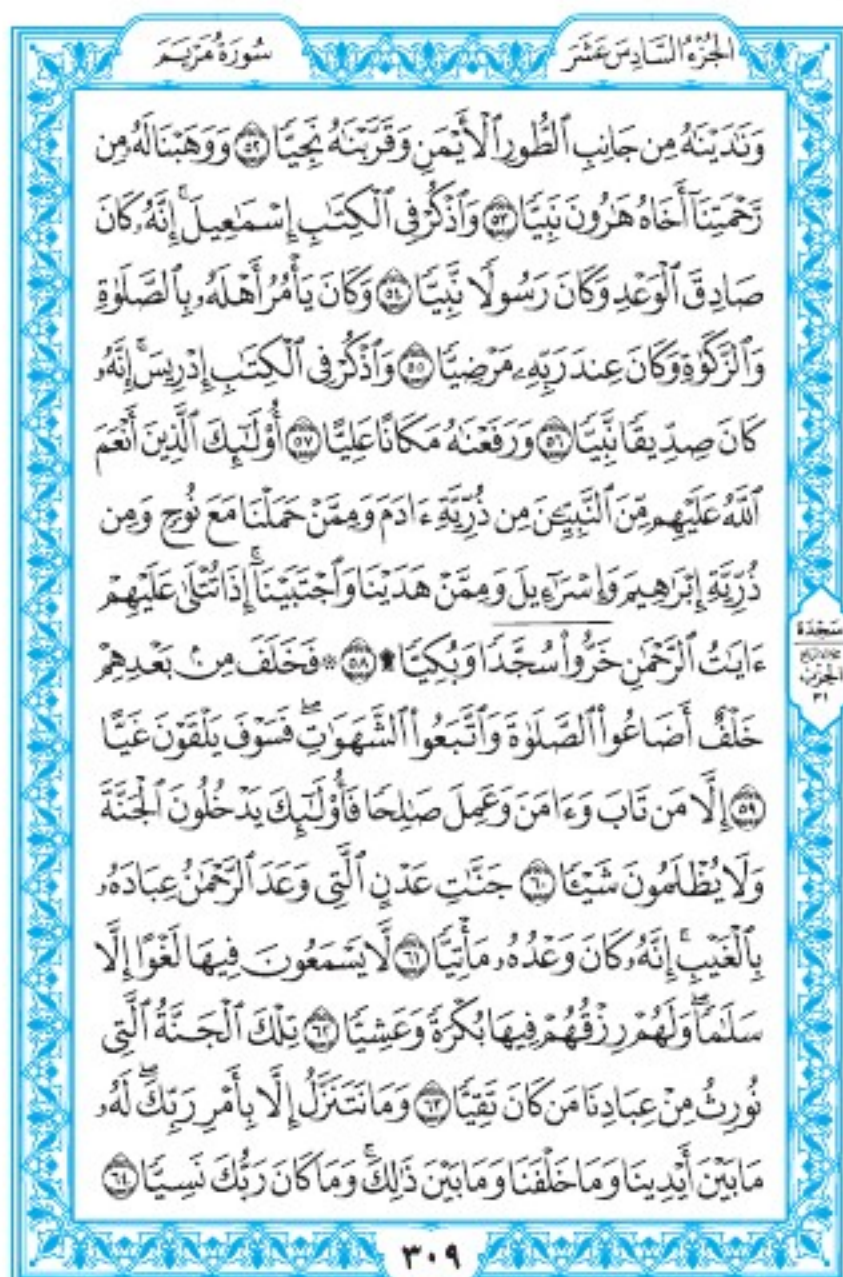 الجُزْءُ السَّادِسَ عَشَرَ
سُورَةُ مَرْيَمَ
وَنَٰدَيْنَٰهُ مِن جَانِبِ ٱلطُّورِ ٱلْأَيْمَنِ وَقَرَّبْنَٰهُ نَجِيًّا ٥٢ وَوَهَبْنَا لَهُۥ مِن
رَّحْمَتِنَآ أَخَاهُ هَٰرُونَ نَبِيًّا ٥٣ وَٱذْكُرْ فِى ٱلْكِتَٰبِ إِسْمَٰعِيلَ ۚ إِنَّهُۥ كَانَ
صَادِقَ ٱلْوَعْدِ وَكَانَ رَسُولًا نَّبِيًّا ٥٤ وَكَانَ يَأْمُرُ أَهْلَهُۥ بِٱلصَّلَوٰةِ
وَٱلزَّكَوٰةِ وَكَانَ عِندَ رَبِّهِۦ مَرْضِيًّا ٥٥ وَٱذْكُرْ فِى ٱلْكِتَٰبِ إِدْرِيسَ ۚ إِنَّهُۥ
كَانَ صِدِّيقًا نَّبِيًّا ٥٦ وَرَفَعْنَٰهُ مَكَانًا عَلِيًّا ٥٧ أُو۟لَٰٓئِكَ ٱلَّذِينَ أَنْعَمَ
ٱللَّهُ عَلَيْهِم مِّنَ ٱلنَّبِيِّـۧنَ مِن ذُرِّيَّةِ ءَادَمَ وَمِمَّنْ حَمَلْنَا مَعَ نُوحٍ وَمِن
ذُرِّيَّةِ إِبْرَٰهِيمَ وَإِسْرَٰٓءِيلَ وَمِمَّنْ هَدَيْنَا وَٱجْتَبَيْنَآ ۚ إِذَا تُتْلَىٰ عَلَيْهِمْ
ءَايَٰتُ ٱلرَّحْمَٰنِ خَرُّوا۟ سُجَّدًا وَبُكِيًّا ۩ ٥٨ ۞ فَخَلَفَ مِنۢ بَعْدِهِمْ
خَلْفٌ أَضَاعُوا۟ ٱلصَّلَوٰةَ وَٱتَّبَعُوا۟ ٱلشَّهَوَٰتِ ۖ فَسَوْفَ يَلْقَوْنَ غَيًّا
٥٩ إِلَّا مَن تَابَ وَءَامَنَ وَعَمِلَ صَٰلِحًا فَأُو۟لَٰٓئِكَ يَدْخُلُونَ ٱلْجَنَّةَ
وَلَا يُظْلَمُونَ شَيْـًٔا ٦٠ جَنَّٰتِ عَدْنٍ ٱلَّتِى وَعَدَ ٱلرَّحْمَٰنُ عِبَادَهُۥ
بِٱلْغَيْبِ ۚ إِنَّهُۥ كَانَ وَعْدُهُۥ مَأْتِيًّا ٦١ لَّا يَسْمَعُونَ فِيهَا لَغْوًا إِلَّا
سَلَٰمًا ۖ وَلَهُمْ رِزْقُهُمْ فِيهَا بُكْرَةً وَعَشِيًّا ٦٢ تِلْكَ ٱلْجَنَّةُ ٱلَّتِى
نُورِثُ مِنْ عِبَادِنَا مَن كَانَ تَقِيًّا ٦٣ وَمَا نَتَنَزَّلُ إِلَّا بِأَمْرِ رَبِّكَ ۖ لَهُۥ
مَا بَيْنَ أَيْدِينَا وَمَا خَلْفَنَا وَمَا بَيْنَ ذَٰلِكَ ۚ وَمَا كَانَ رَبُّكَ نَسِيًّا ٦٤
سَجْدَة
الحِزْب
٣١
٣٠٩